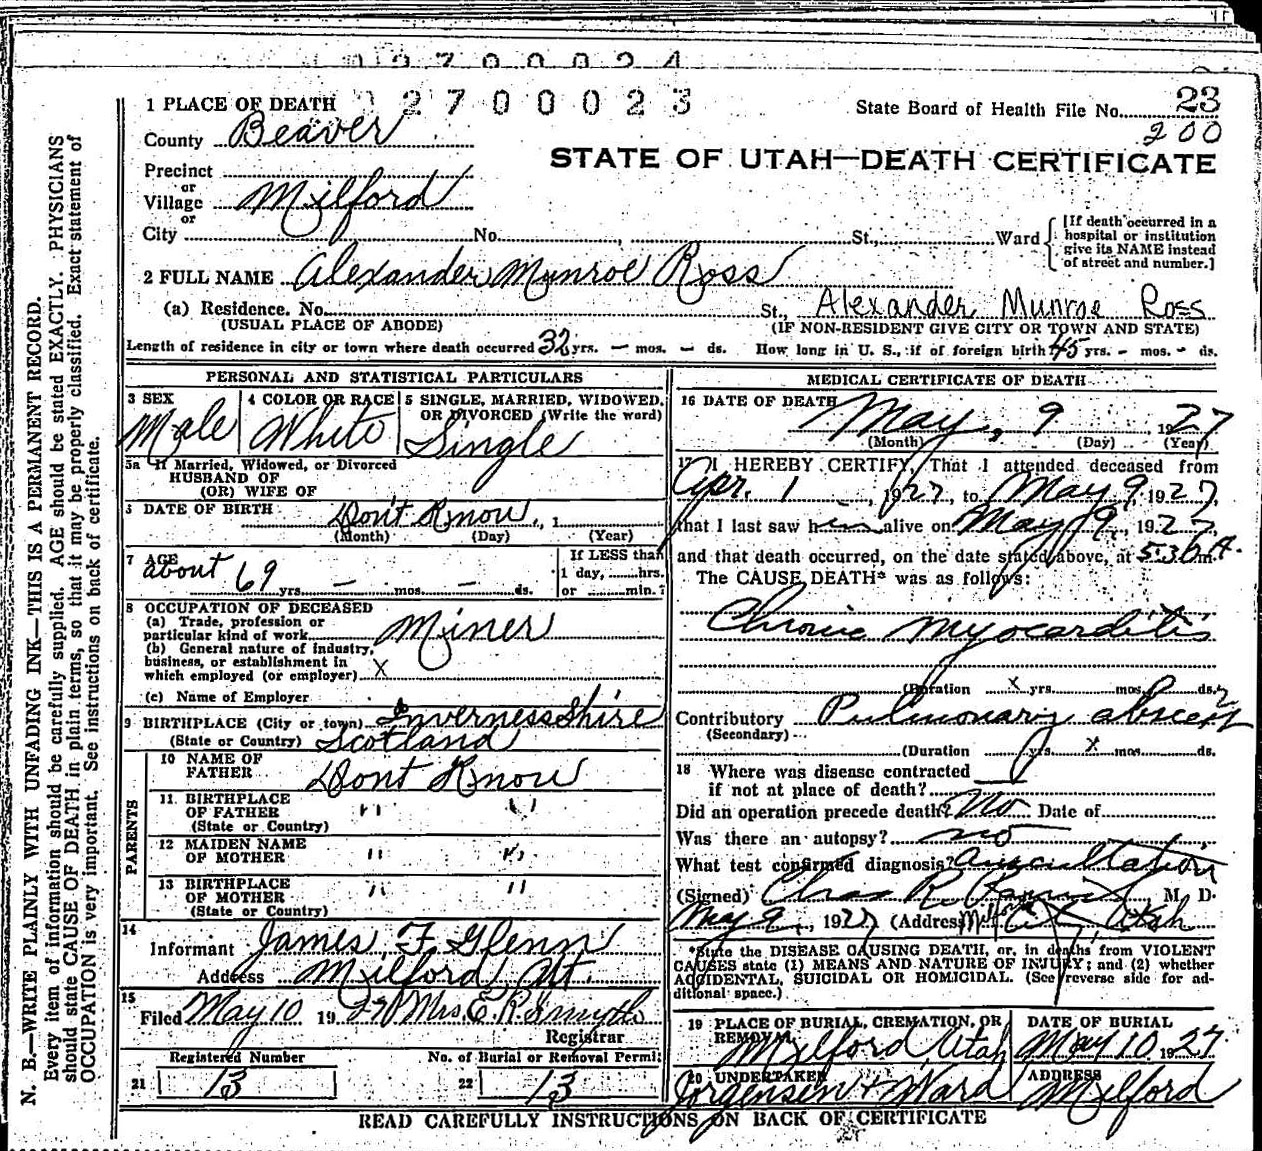 2700023
1 PLACE OF DEATH
State Board of Health File No. 23
200
County Beaver
STATE OF UTAH—DEATH CERTIFICATE
Precinct
or
Village Milford
or
City No. St., Ward
[If death occurred in a hospital or institution give its NAME instead of street and number.]
2 FULL NAME Alexander Munroe Ross
(a) Residence. No. St., Alexander Munroe Ross
(USUAL PLACE OF ABODE) (IF NON-RESIDENT GIVE CITY OR TOWN AND STATE)
Length of residence in city or town where death occurred 32 yrs. – mos. – ds. How long in U. S., if of foreign birth? 45 yrs. – mos. – ds.
PERSONAL AND STATISTICAL PARTICULARS
3 SEX Male
4 COLOR OR RACE White
5 SINGLE, MARRIED, WIDOWED, OR DIVORCED (Write the word) Single
5a If Married, Widowed, or Divorced
HUSBAND OF
(OR) WIFE OF
DATE OF BIRTH Don't Know, 1
(Month) (Day) (Year)
7 AGE about 69 yrs. – mos. – ds.
If LESS than
1 day, hrs.
or min.?
8 OCCUPATION OF DECEASED
(a) Trade, profession or
particular kind of work Miner
(b) General nature of industry,
business, or establishment in
which employed (or employer) X
(c) Name of Employer
9 BIRTHPLACE (City or town) InvernessShire
(State or Country) Scotland
PARENTS
10 NAME OF
FATHER Dont Know
11. BIRTHPLACE
OF FATHER " "
(State or Country)
12 MAIDEN NAME
OF MOTHER " "
13 BIRTHPLACE
OF MOTHER " "
(State or Country)
14
Informant James F Glenn
Address Milford, Ut.
15
Filed May 10 1927 Mrs. E. R. Smyth
Registrar
Registered Number
21 13
No. of Burial or Removal Permit
22 13
MEDICAL CERTIFICATE OF DEATH
16 DATE OF DEATH
May, 9 1927
(Month) (Day) (Year)
17 I HEREBY CERTIFY, That I attended deceased from
Apr. 1, 1927, to May 9, 1927,
that I last saw him alive on May 9, 1927
and that death occurred, on the date stated above, at 5:30 A. m.
The CAUSE DEATH* was as follows:
Chronic Myocarditis
(Duration x yrs. mos. ds.
Contributory Pulmonary abscess
(Secondary)
(Duration yrs. x mos. ds.
18 Where was disease contracted
if not at place of death?
Did an operation precede death? No Date of
Was there an autopsy? no
What test confirmed diagnosis? Auscultation
(Signed) Chas R. M. D.
May 9, 1927 (Address) Milford Utah
*State the DISEASE CAUSING DEATH, or, in deaths from VIOLENT
CAUSES state (1) MEANS AND NATURE OF INJURY; and (2) whether
ACCIDENTAL, SUICIDAL OR HOMICIDAL. (See reverse side for ad-
ditional space.)
19 PLACE OF BURIAL, CREMATION, OR
REMOVAL Milford Utah
DATE OF BURIAL
May 10 1927
20 UNDERTAKER
Jorgensen & Ward
ADDRESS
Milford
READ CAREFULLY INSTRUCTIONS ON BACK OF CERTIFICATE
N. B.—WRITE PLAINLY WITH UNFADING INK—THIS IS A PERMANENT RECORD.
Every item of information should be carefully supplied. AGE should be stated EXACTLY. PHYSICIANS
should state CAUSE OF DEATH in plain terms, so that it may be properly classified. Exact statement of
OCCUPATION is very important. See instructions on back of certificate.